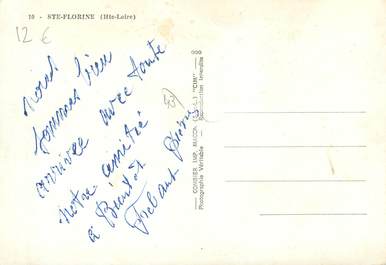 10 - STE-FLORINE (Hte-Loire)
12 €
nous
sommes bien
arrivée avec toute
notre amitié
à Bientôt
COMBIER IMP. MACON (S.-&-L.) "CIM"
Photographie Véritable - Reproduction Interdite